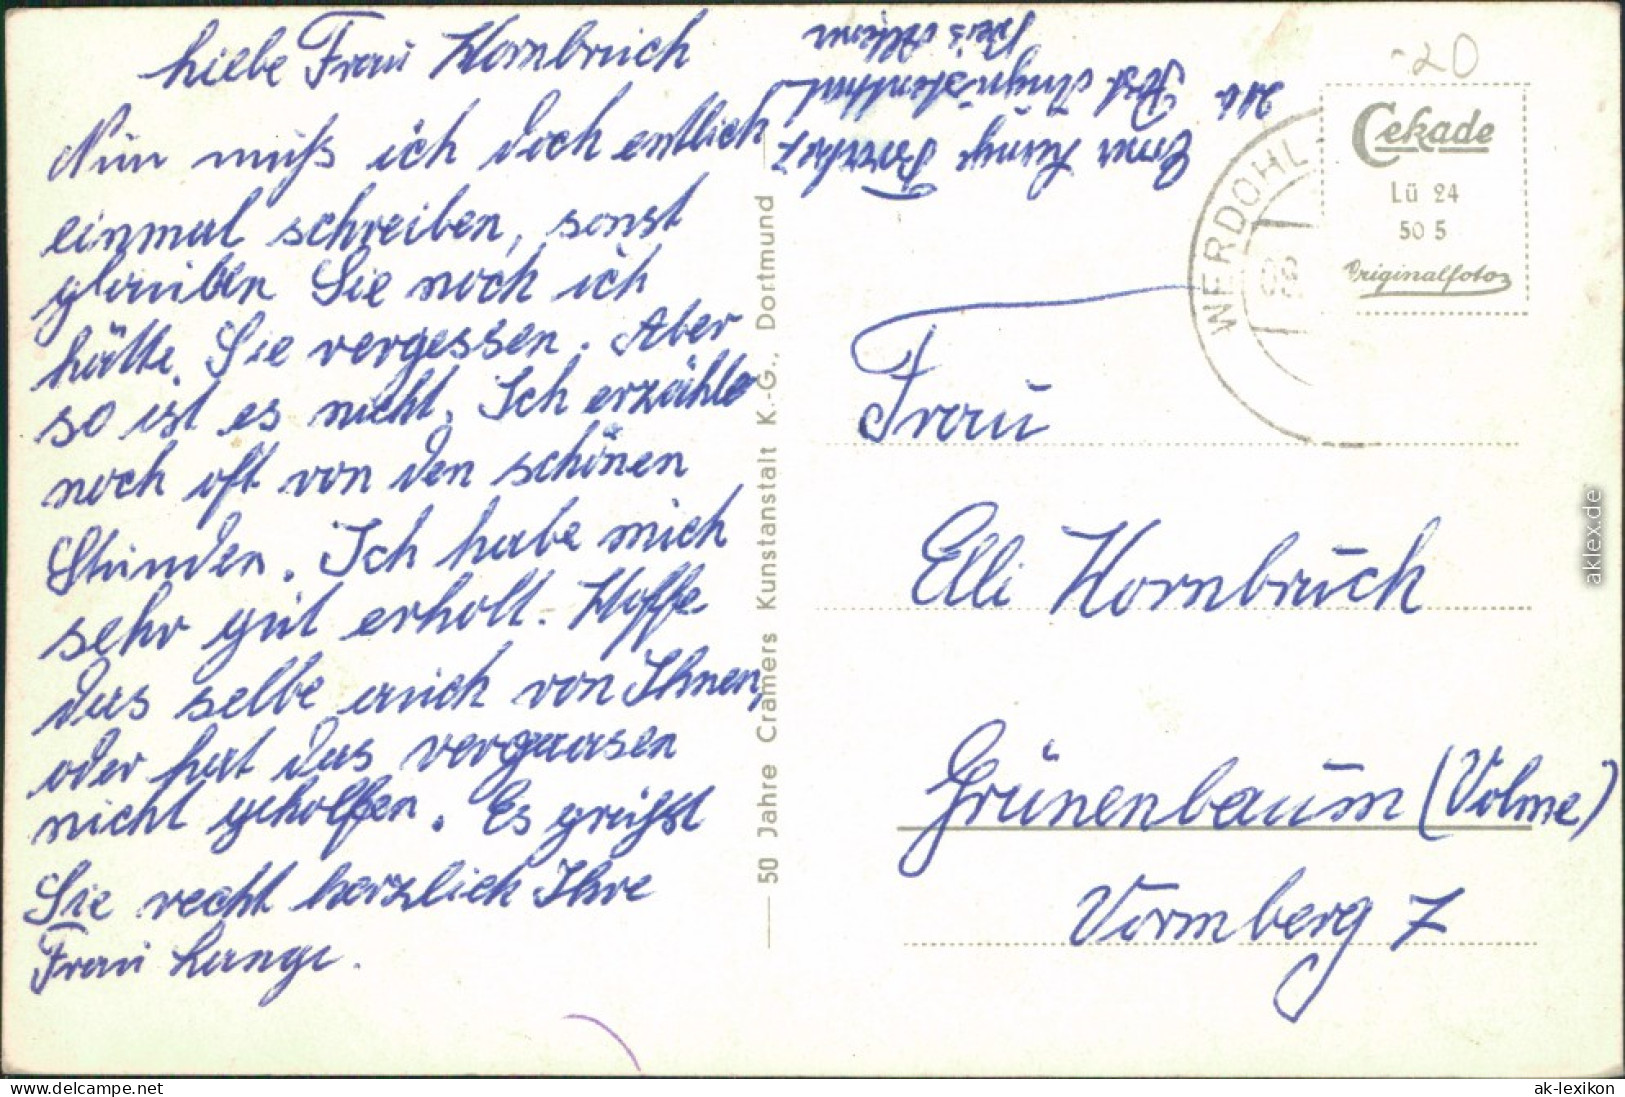 Liebe Frau Hornbruch
Nun muß ich doch entlich
einmal schreiben, sonst
glauben Sie noch ich
hätte Sie vergessen. Aber
so ist es nicht. Ich erzähle
noch oft von den schönen
Stunden. Ich habe mich
sehr gut erholt. Hoffe
das selbe auch von Ihnen,
oder hat das vergaasen
nicht geholfen. Es grüßt
Sie recht herzlich Ihre
Frau Lange.
50 Jahre Cramers Kunstanstalt K.-G., Dortmund
Lange
Post
-20
WERDOHL
Cekade
Lü 24
50 5
Originalfoto
Frau
Elli Hornbruch
Grünenbaum (Volme)
Vormberg 7
aklex.de
www.delcampe.net
ak-lexikon